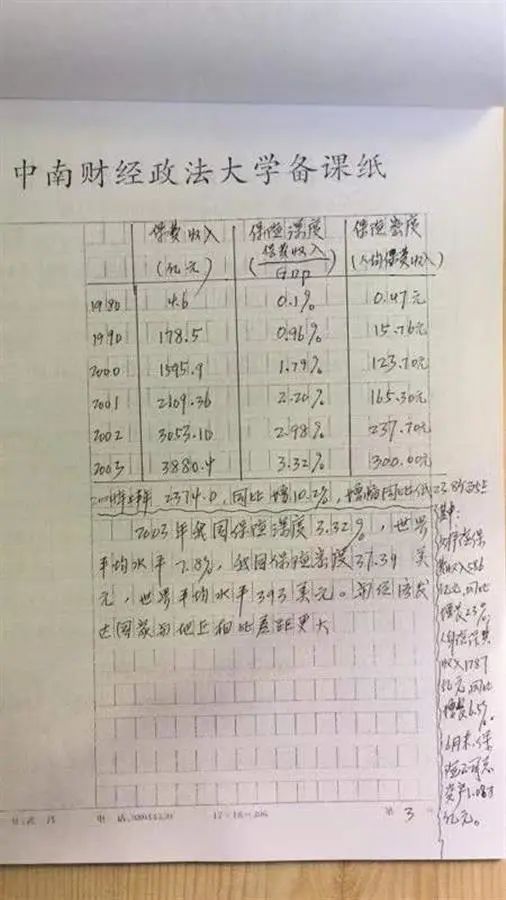 中南财经政法大学备课纸
保费收入 保险深度 保险密度
(亿元) (保费收入/GDP) (人均保费收入)
1980 4.6 0.1% 0.47元
1990 178.5 0.96% 15.76元
2000 1595.9 1.79% 123.70元
2001 2109.36 2.20% 165.30元
2002 3053.10 2.98% 237.70元
2003 3880.4 3.32% 300.00元
2374.0,同比增10.2%,增幅同比低23.8个百分点
2003年我国保险深度3.32%,世界
平均水平7.8%,我国保险密度37.39美
元,世界平均水平393美元。与经济发
达国家与地区相比差距更大
其中:
财产险保
费收入586
亿元,同比
增长23%,
人身险保费
收入1787
亿元,同比
增长6.5%。
6月末,保
险公司总
资产1.08万
亿元。
第 3